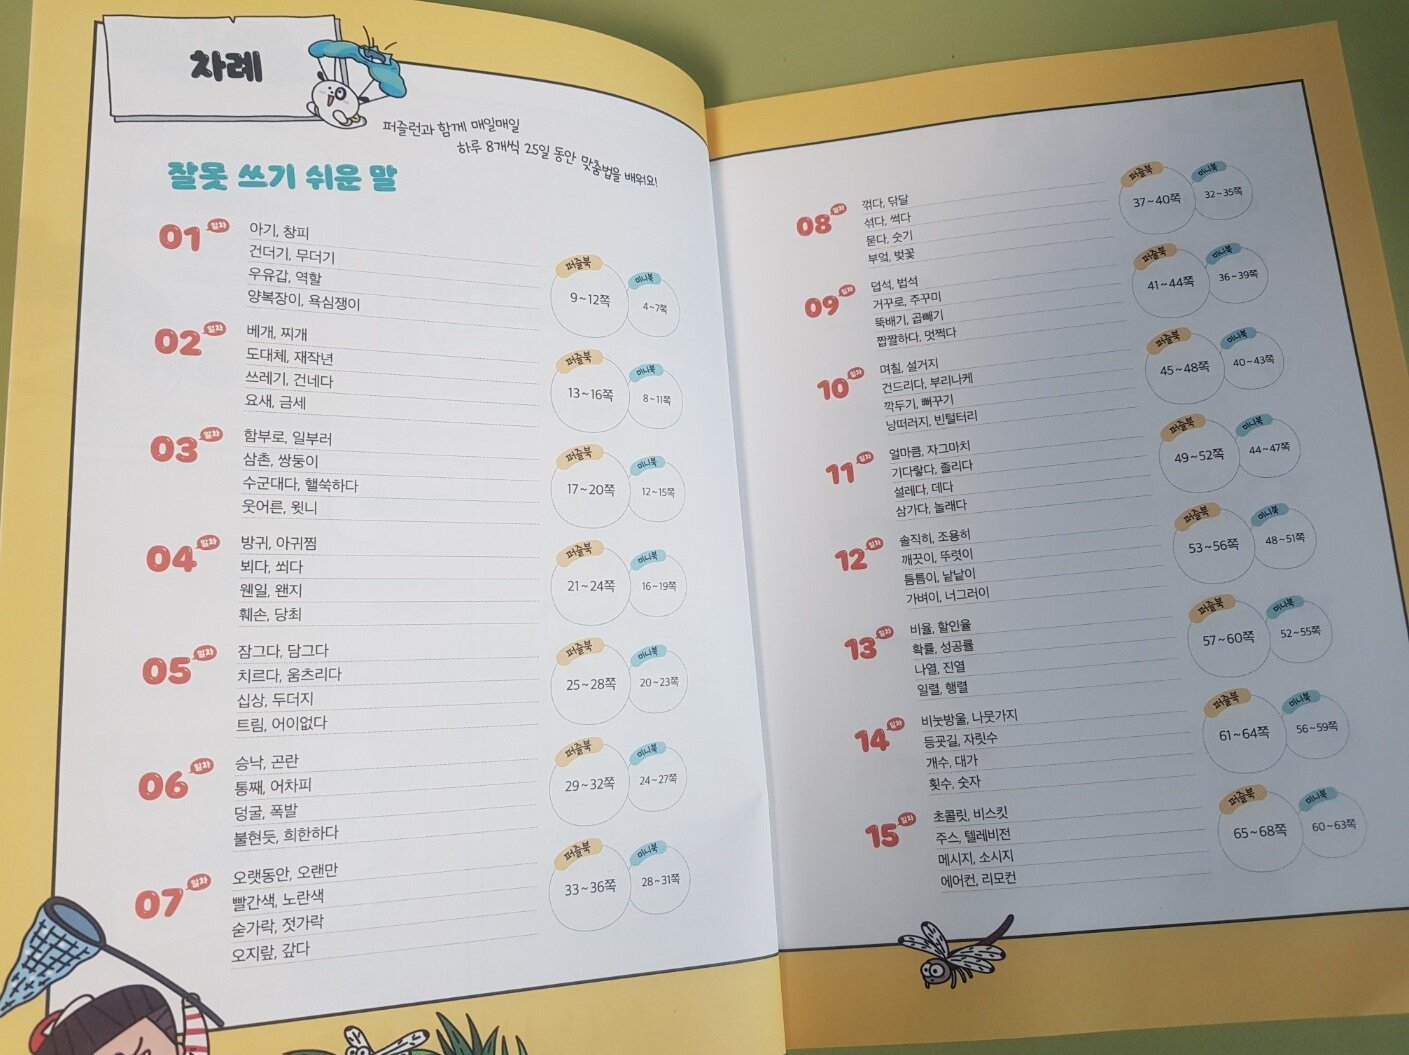 차례
퍼즐런과 함께 매일매일
하루 8개씩 25일 동안 맞춤법을 배워요!
잘못 쓰기 쉬운 말
01 일차
아기, 창피
건더기, 무더기
우유갑, 역할
양복장이, 욕심쟁이
퍼즐북 9~12쪽
미니북 4~7쪽
02 일차
베개, 찌개
도대체, 재작년
쓰레기, 건네다
요새, 금세
퍼즐북 13~16쪽
미니북 8~11쪽
03 일차
함부로, 일부러
삼촌, 쌍둥이
수군대다, 핼쑥하다
웃어른, 윗니
퍼즐북 17~20쪽
미니북 12~15쪽
04 일차
방귀, 아귀찜
뵈다, 쐬다
웬일, 왠지
훼손, 당최
퍼즐북 21~24쪽
미니북 16~19쪽
05 일차
잠그다, 담그다
치르다, 움츠리다
십상, 두더지
트림, 어이없다
퍼즐북 25~28쪽
미니북 20~23쪽
06 일차
승낙, 곤란
통째, 어차피
덩굴, 폭발
불현듯, 희한하다
퍼즐북 29~32쪽
미니북 24~27쪽
07 일차
오랫동안, 오랜만
빨간색, 노란색
숟가락, 젓가락
오지랖, 갚다
퍼즐북 33~36쪽
미니북 28~31쪽
08 일차
꺾다, 닦달
섞다, 썩다
묻다, 숯기
부엌, 벚꽃
퍼즐북 37~40쪽
미니북 32~35쪽
09 일차
덥석, 법석
거꾸로, 주꾸미
뚝배기, 곱빼기
짭짤하다, 멋쩍다
퍼즐북 41~44쪽
미니북 36~39쪽
10 일차
며칠, 설거지
건드리다, 부리나케
깍두기, 뻐꾸기
낭떠러지, 빈털터리
퍼즐북 45~48쪽
미니북 40~43쪽
11 일차
얼마큼, 자그마치
기다랗다, 졸리다
설레다, 데다
삼가다, 놀래다
퍼즐북 49~52쪽
미니북 44~47쪽
12 일차
솔직히, 조용히
깨끗이, 뚜렷이
틈틈이, 낱낱이
가벼이, 너그러이
퍼즐북 53~56쪽
미니북 48~51쪽
13 일차
비율, 할인율
확률, 성공률
나열, 진열
일렬, 행렬
퍼즐북 57~60쪽
미니북 52~55쪽
14 일차
비눗방울, 나뭇가지
등굣길, 자릿수
개수, 대가
횟수, 숫자
퍼즐북 61~64쪽
미니북 56~59쪽
15 일차
초콜릿, 비스킷
주스, 텔레비전
메시지, 소시지
에어컨, 리모컨
퍼즐북 65~68쪽
미니북 60~63쪽